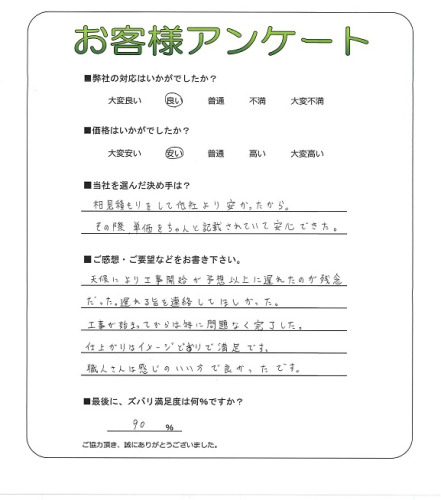 お客様アンケート
■弊社の対応はいかがでしたか？
大変良い 良い 普通 不満 大変不満
■価格はいかがでしたか？
大変安い 安い 普通 高い 大変高い
■当社を選んだ決め手は？
相見積もりをして他社より安かったから。
その際、単価をちゃんと記載されていて安心できた。
■ご感想・ご要望などをお書き下さい。
天候により工事開始が予想以上に遅れたのが残念
だった。遅れる旨を連絡してほしかった。
工事が始まってからは特に問題なく完了した。
仕上がりはイメージどおりで満足です。
職人さんは感じのいい方で良かったです。
■最後に、ズバリ満足度は何%ですか？
90 %
ご協力頂き、誠にありがとうございました。